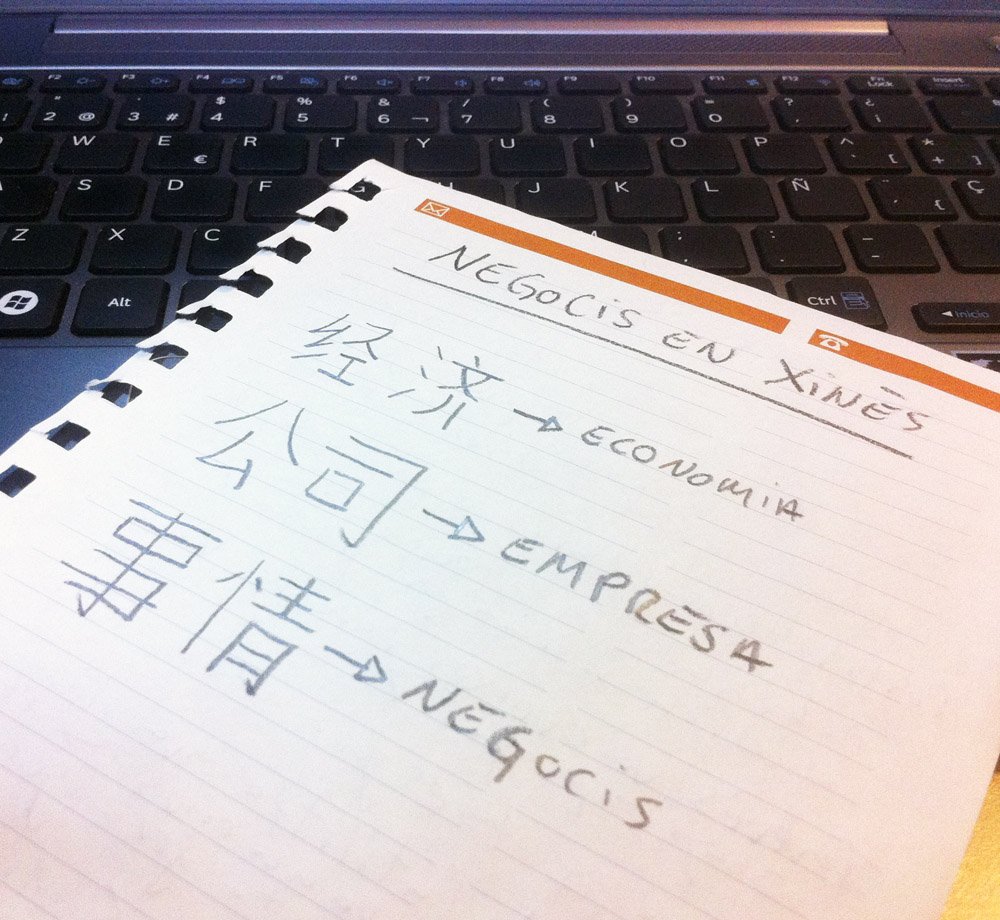 F2 F3 F4 F5 F6 F7 F8 F9 F10 F11 F12 Fn Lock Insert
" 2 @ . 3 # $ 4 % 5 & 6 ¬ / 7 ( 8 ) 9 = 0 ? ' ¿ ¡
W E € R T Y U I O P ^ ` [ * + ]
A S D F J K L Ñ ¨ ´ { Ç
Z X C M ; , : . _ -
Alt Ctrl Inicio
NEGOCIS EN XINÉS
经济 → ECONOMIA
公司 → EMPRESA
事情 → NEGOCIS